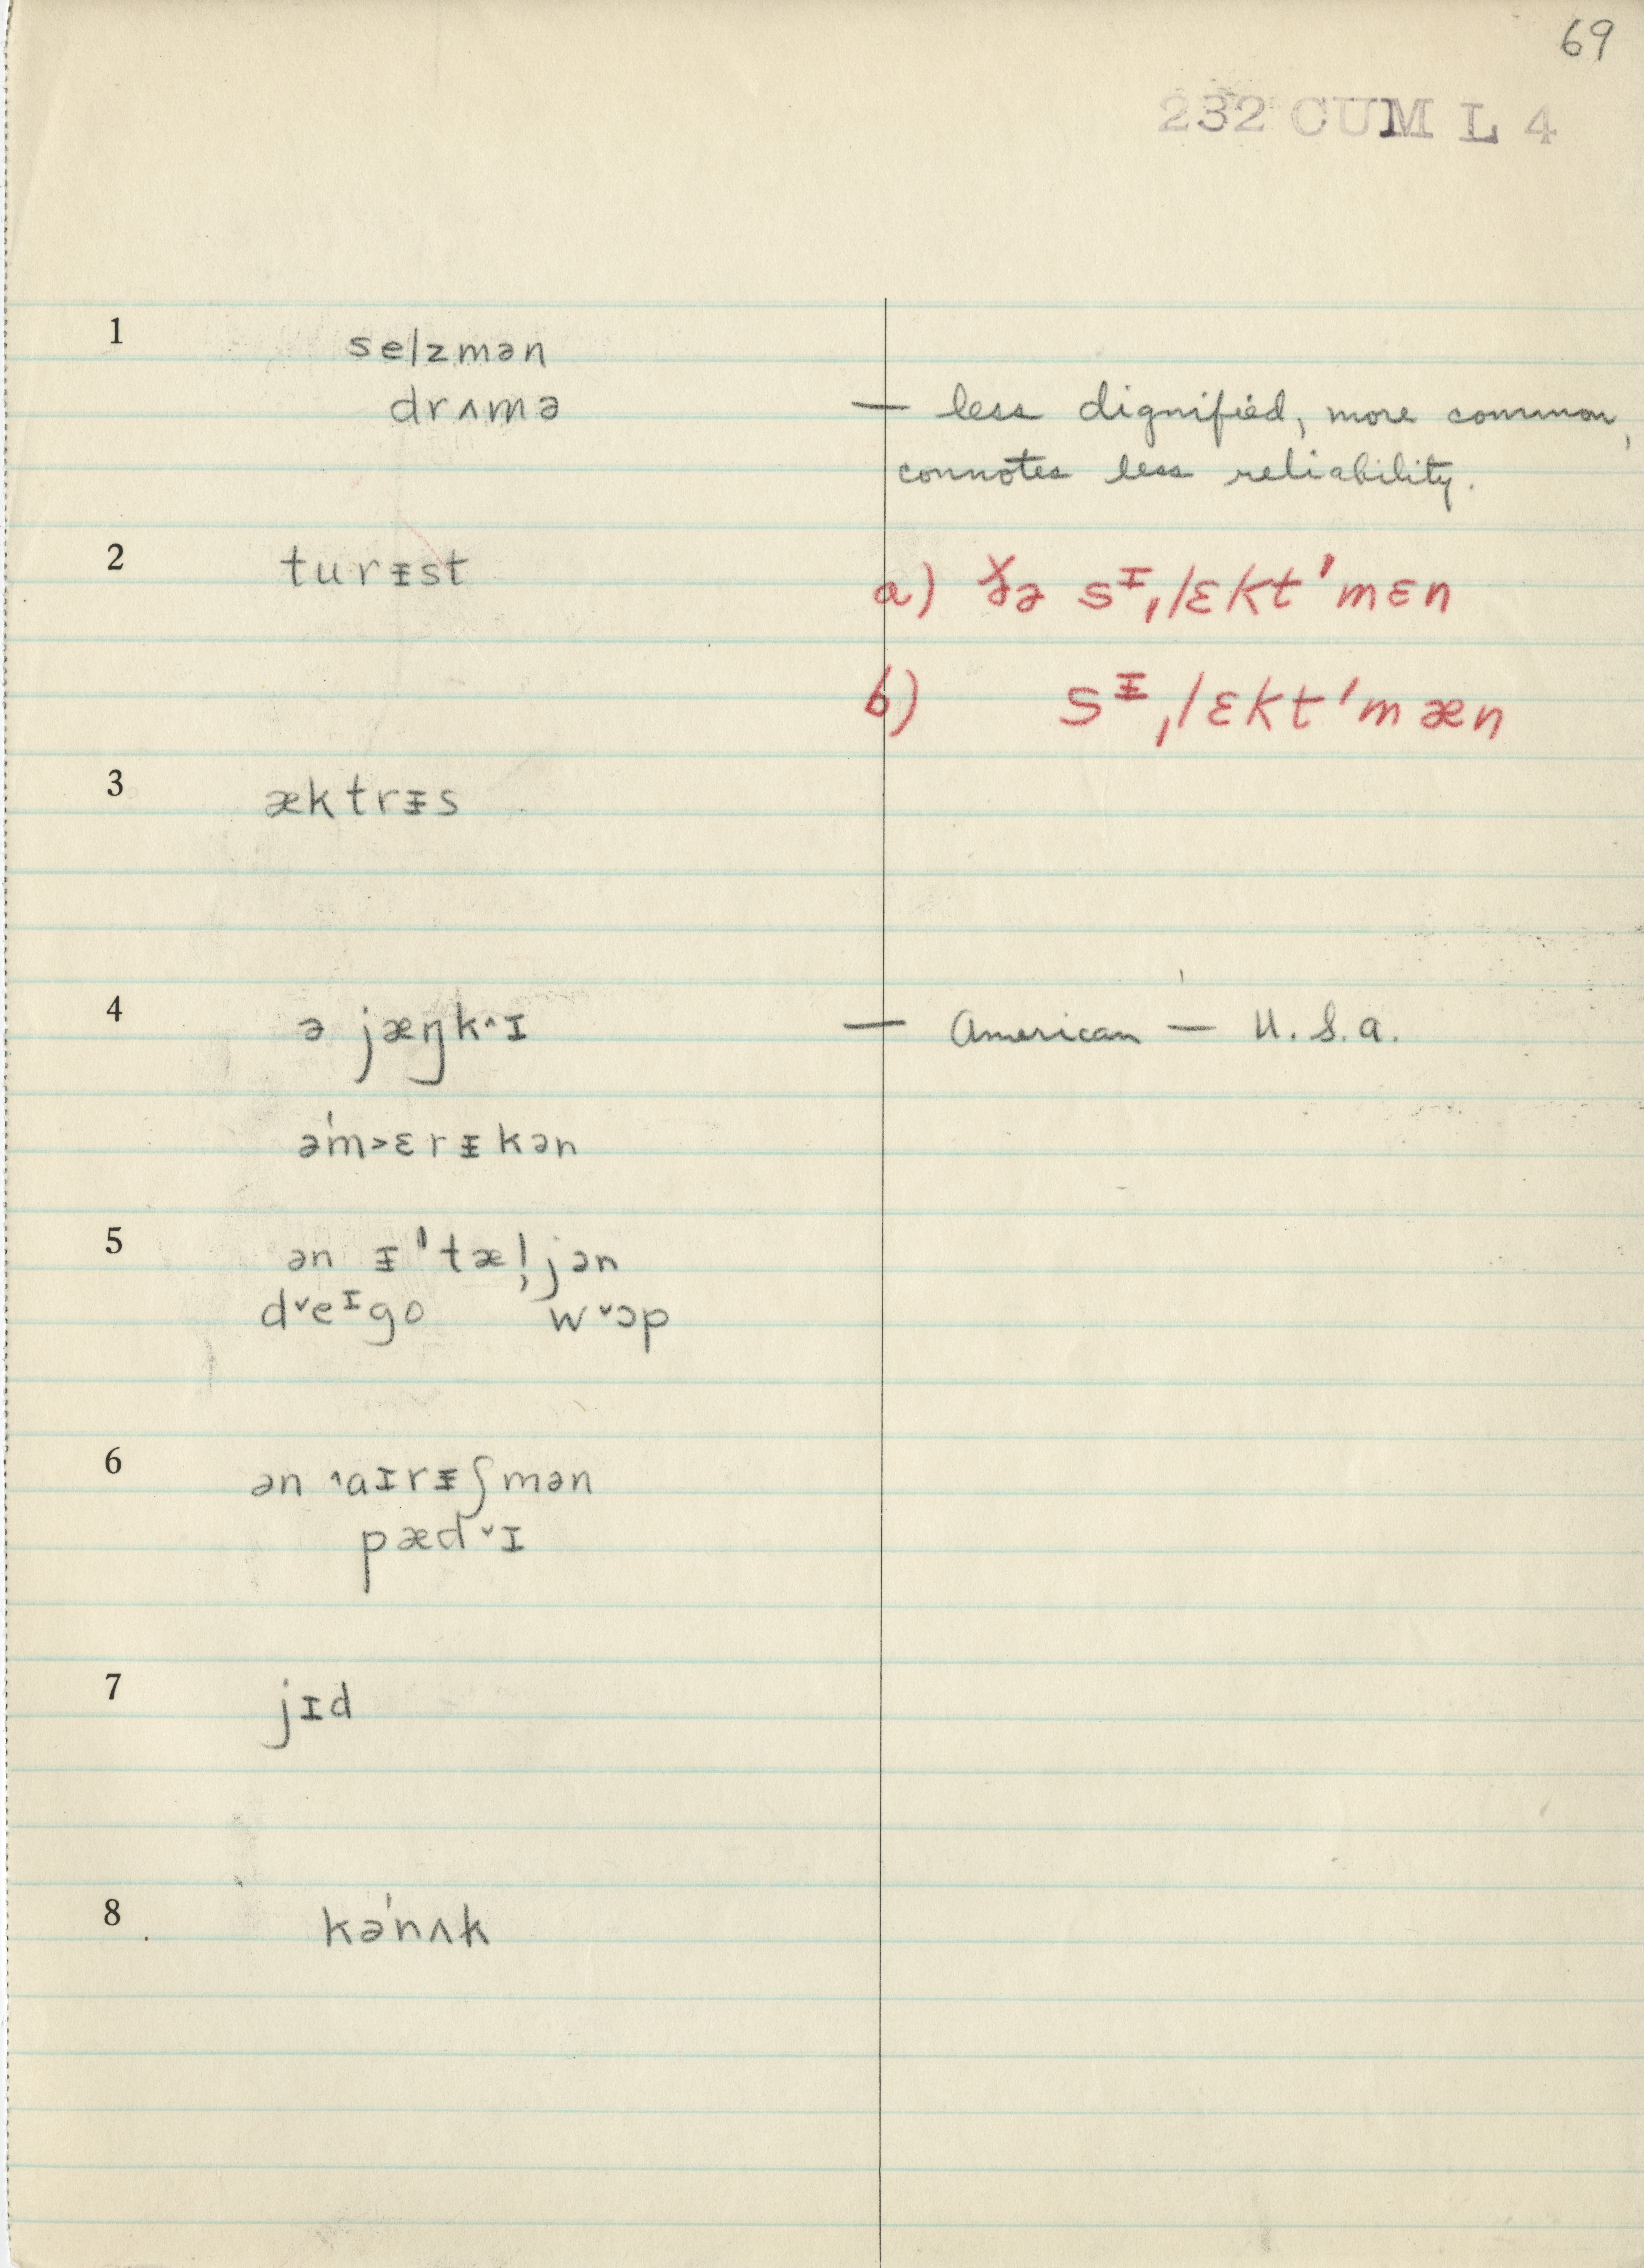 69
232 CUM L 4
1 selzmən
drʌmə — less dignified, more common,
connotes less reliability.
2 turᵻst a) ðə sᶦˌlɛkt'mɛn
b) sᵻˌlɛkt'mæn
3 æktrᵻs
4 ə jæŋk˄ɪ — American — U.S.A.
ə'm˃ɛrᵻkən
5 ən ᵻ'tæl̩jən
d˅eᶦgo w˅ɔp
6 ən ˄aɪrᵻʃmən
pæd˅ɪ
7 jɪd
8 kə'nʌk